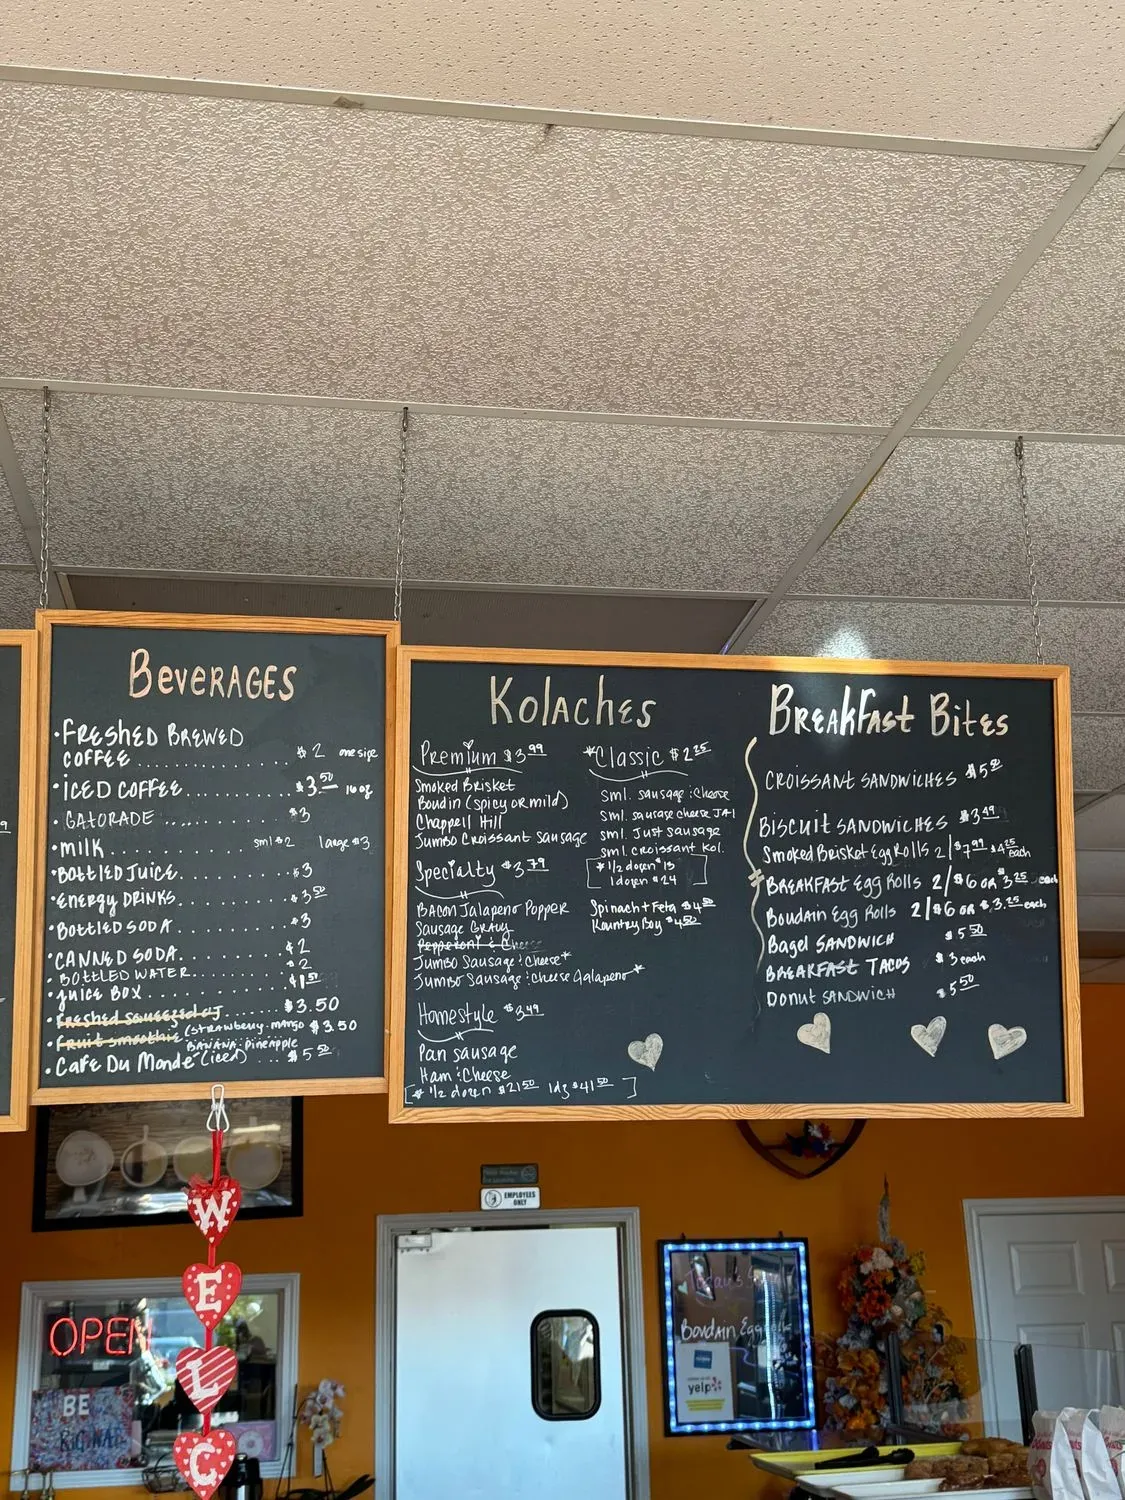 Beverages
• Freshed Brewed
Coffee............. $2 one size
• Iced Coffee............ $3.50 16 oz
• Gatorade............ $3
• milk............ sml $2 large $3
• Bottled Juice............ $3
• Energy Drinks............ $3.50
• Bottled Soda............ $3
• Canned Soda............ $2
• Bottled Water............ $2
• Juice Box............ $1.50
• Freshed Squeezed OJ............ $3.50
• Fruit Smoothie (strawberry. mango $3.50
Banana. pineapple
• Cafe Du Monde (iced).... $5.50
Kolaches
Premium $3.99
Smoked Brisket
Boudin (spicy or mild)
Chappell Hill
Jumbo Croissant Sausage
Specialty $3.79
Bacon Jalapeno Popper
Sausage Gravy
Pepperoni & Cheese
Jumbo Sausage & Cheese*
Jumbo Sausage & Cheese Jalapeno*
Homestyle $3.49
Pan sausage
Ham & Cheese
[* 1/2 dozen $21.50 1dz $41.50 ]
*Classic $2.25
sml. sausage & Cheese
sml. sausage cheese JAl
sml. Just sausage
sml. croissant Kol.
[* 1/2 dozen $13
1 dozen $24 ]
Spinach + Feta $4.50
Kountry Boy $4.50
Breakfast Bites
Croissant Sandwiches $5.50
Biscuit Sandwiches $3.49
Smoked Brisket Egg Rolls 2/$7.99 $4.25 each
Breakfast Egg Rolls 2/$6 or $3.25 each
Boudain Egg Rolls 2/$6 or $3.25 each
Bagel Sandwich $5.50
Breakfast Tacos $3 each
Donut Sandwich $5.50
EMPLOYEES
ONLY
W
E
L
C
OPEN
BE
Today's
Boudain Egg
yelp